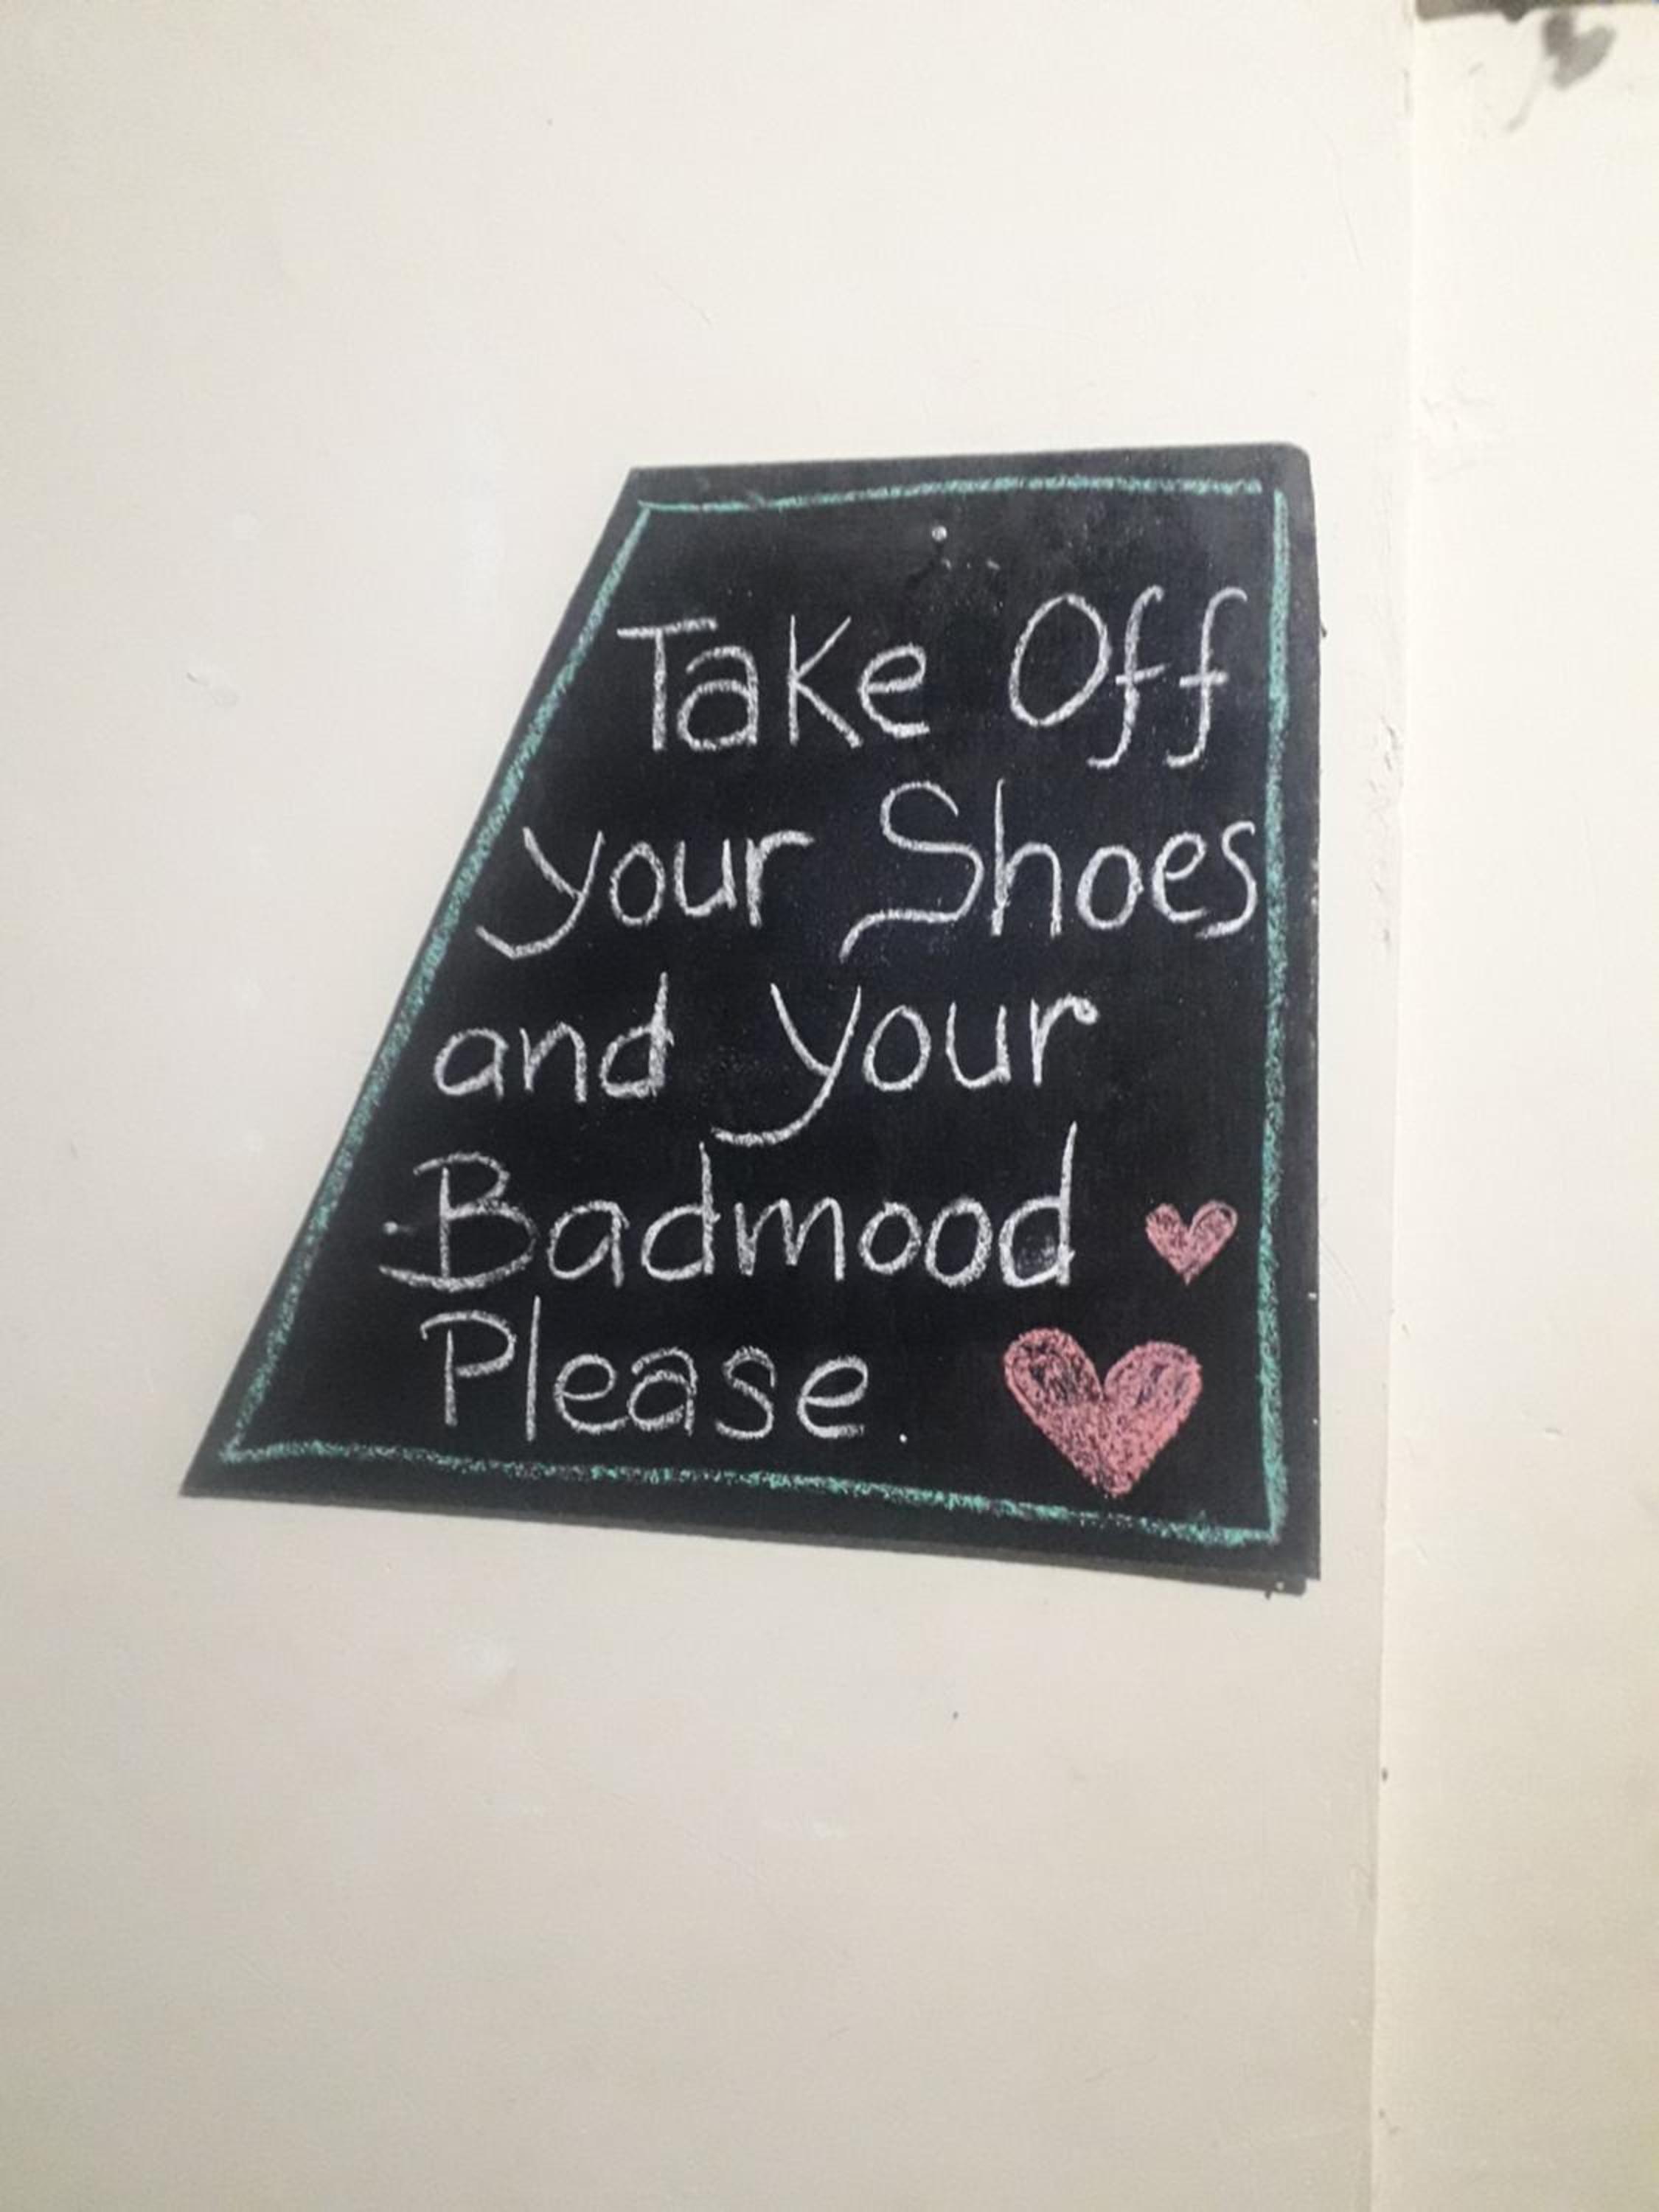 Take Off
your Shoes
and your
Badmood
Please.